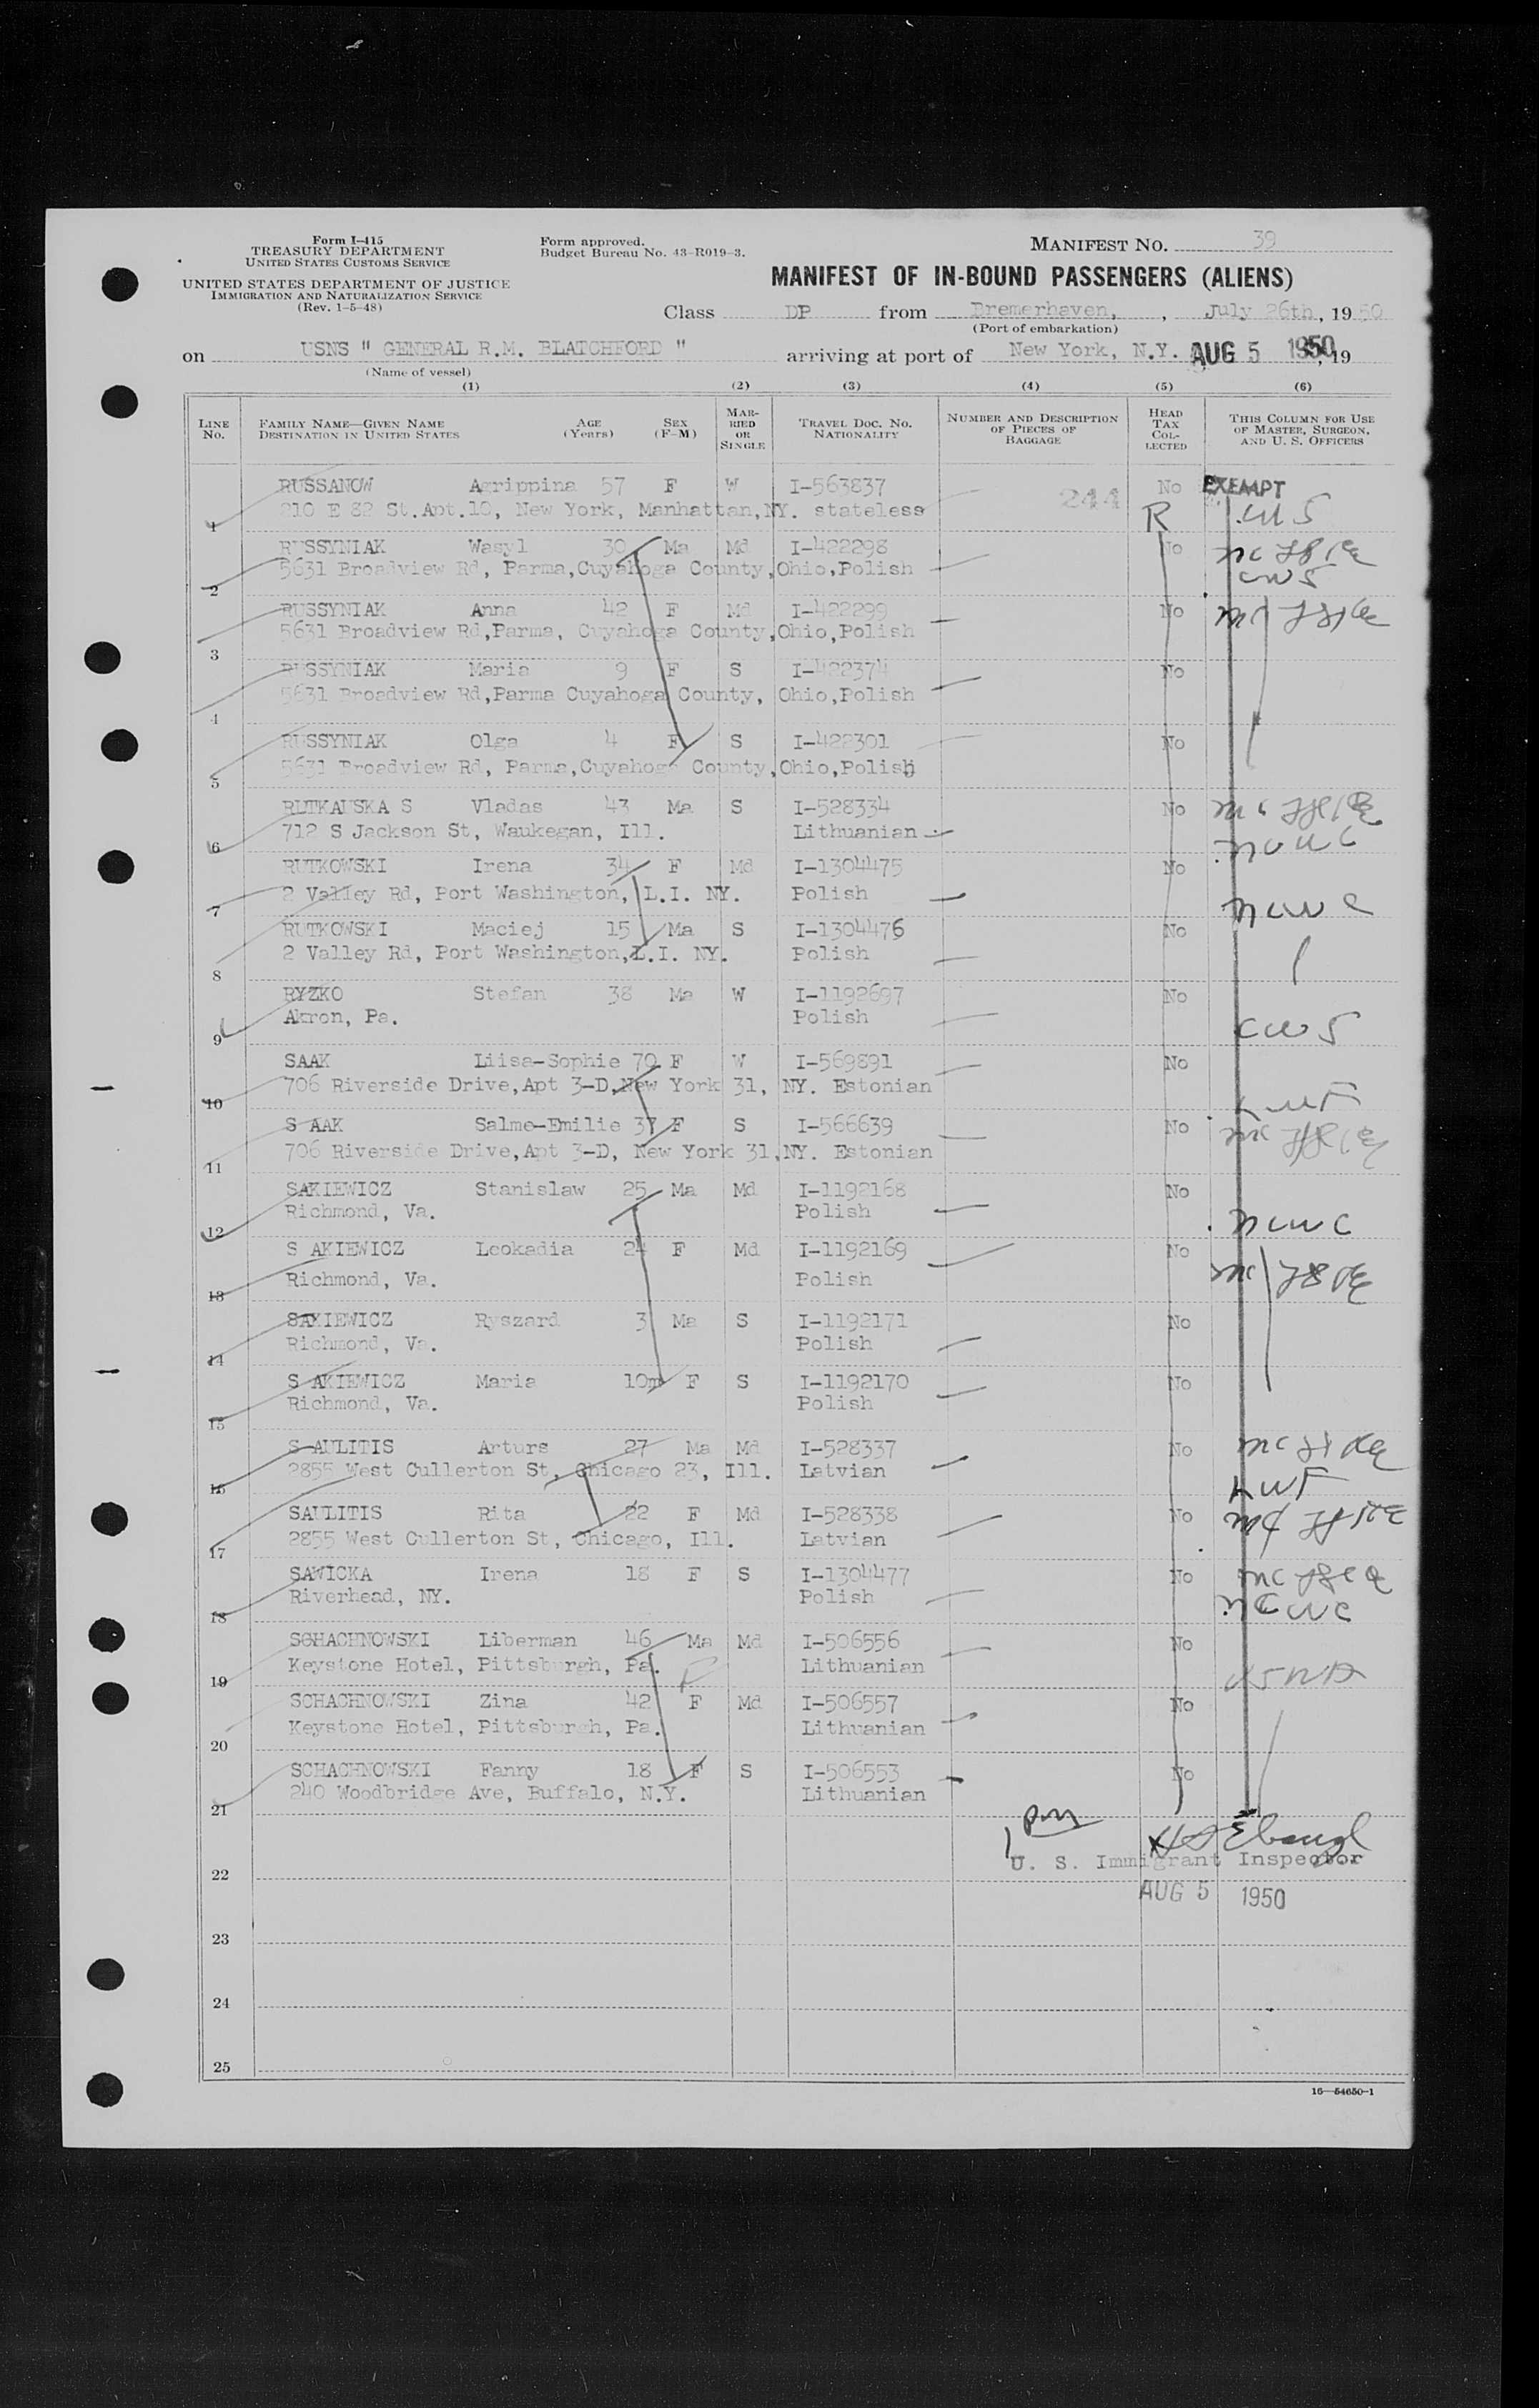 Form I-415
TREASURY DEPARTMENT
UNITED STATES CUSTOMS SERVICE
UNITED STATES DEPARTMENT OF JUSTICE
IMMIGRATION AND NATURALIZATION SERVICE
(Rev. 1-5-48)
Form approved.
Budget Bureau No. 43-R019-3.
MANIFEST NO. 39
MANIFEST OF IN-BOUND PASSENGERS (ALIENS)
Class DP from Bremerhaven, , July 26th, 1950
(Port of embarkation)
on USNS " GENERAL R.M. BLATCHFORD " arriving at port of New York, N.Y. AUG 5 1950, 19
(Name of vessel)
(1) (2) (3) (4) (5) (6)
LINE No. FAMILY NAME—GIVEN NAME DESTINATION IN UNITED STATES AGE (Years) SEX (F-M) MARRIED OR SINGLE TRAVEL DOC. NO. NATIONALITY NUMBER AND DESCRIPTION OF PIECES OF BAGGAGE HEAD TAX COLLECTED THIS COLUMN FOR USE OF MASTER, SURGEON, AND U. S. OFFICERS
RUSSANOW Agrippina 57 F W I-563837 244 No EXEMPT
1 210 E 82 St.Apt.10, New York, Manhattan,NY. stateless R
RUSSYNIAK Wasyl 30 Ma Md I-422298 No
2 5631 Broadview Rd, Parma,Cuyahoga County,Ohio,Polish CWS
RUSSYNIAK Anna 42 F Md I-422299 No
3 5631 Broadview Rd,Parma, Cuyahoga County,Ohio,Polish
RUSSYNIAK Maria 9 F S I-422374 No
4 5631 Broadview Rd,Parma Cuyahoga County, Ohio,Polish
RUSSYNIAK Olga 4 F S I-422301 No
5 5631 Broadview Rd, Parma,Cuyahoga County,Ohio,Polish
RUTKAUSKA S Vladas 43 Ma S I-528334 No
6 712 S Jackson St, Waukegan, Ill. Lithuanian
RUTKOWSKI Irena 34 F Md I-1304475 No
7 2 Valley Rd, Port Washington, L.I. NY. Polish
RUTKOWSKI Maciej 15 Ma S I-1304476 No
8 2 Valley Rd, Port Washington,L.I. NY. Polish
RYZKO Stefan 38 Ma W I-1192697 No
9 Akron, Pa. Polish CWS
SAAK Liisa-Sophie 70 F W I-569891 No
10 706 Riverside Drive,Apt 3-D,New York 31, NY. Estonian LWF
S AAK Salme-Emilie 37 F S I-566639 No
11 706 Riverside Drive,Apt 3-D, New York 31,NY. Estonian
SAKIEWICZ Stanislaw 25 Ma Md I-1192168 No
12 Richmond, Va. Polish NCWC
S AKIEWICZ Leokadia 24 F Md I-1192169 No
13 Richmond, Va. Polish
SAKIEWICZ Ryszard 3 Ma S I-1192171 No
14 Richmond, Va. Polish
S AKIEWICZ Maria 10m F S I-1192170 No
15 Richmond, Va. Polish
S AULITIS Arturs 27 Ma Md I-528337 No
16 2855 West Cullerton St, Chicago 23, Ill. Latvian LWF
SAULITIS Rita 22 F Md I-528338 No
17 2855 West Cullerton St, Chicago, Ill. Latvian
SAWICKA Irena 18 F S I-1304477 No
18 Riverhead, NY. Polish NCWC
SCHACHNOWSKI Liberman 46 Ma Md I-506556 No
19 Keystone Hotel, Pittsburgh, Pa. Lithuanian
SCHACHNOWSKI Zina 42 F Md I-506557 No
20 Keystone Hotel, Pittsburgh, Pa. Lithuanian
SCHACHNOWSKI Fanny 18 F S I-506553 No
21 240 Woodbridge Ave, Buffalo, N.Y. Lithuanian
22 U. S. Immigrant Inspector
AUG 5 1950
23
24
25
16—54650-1